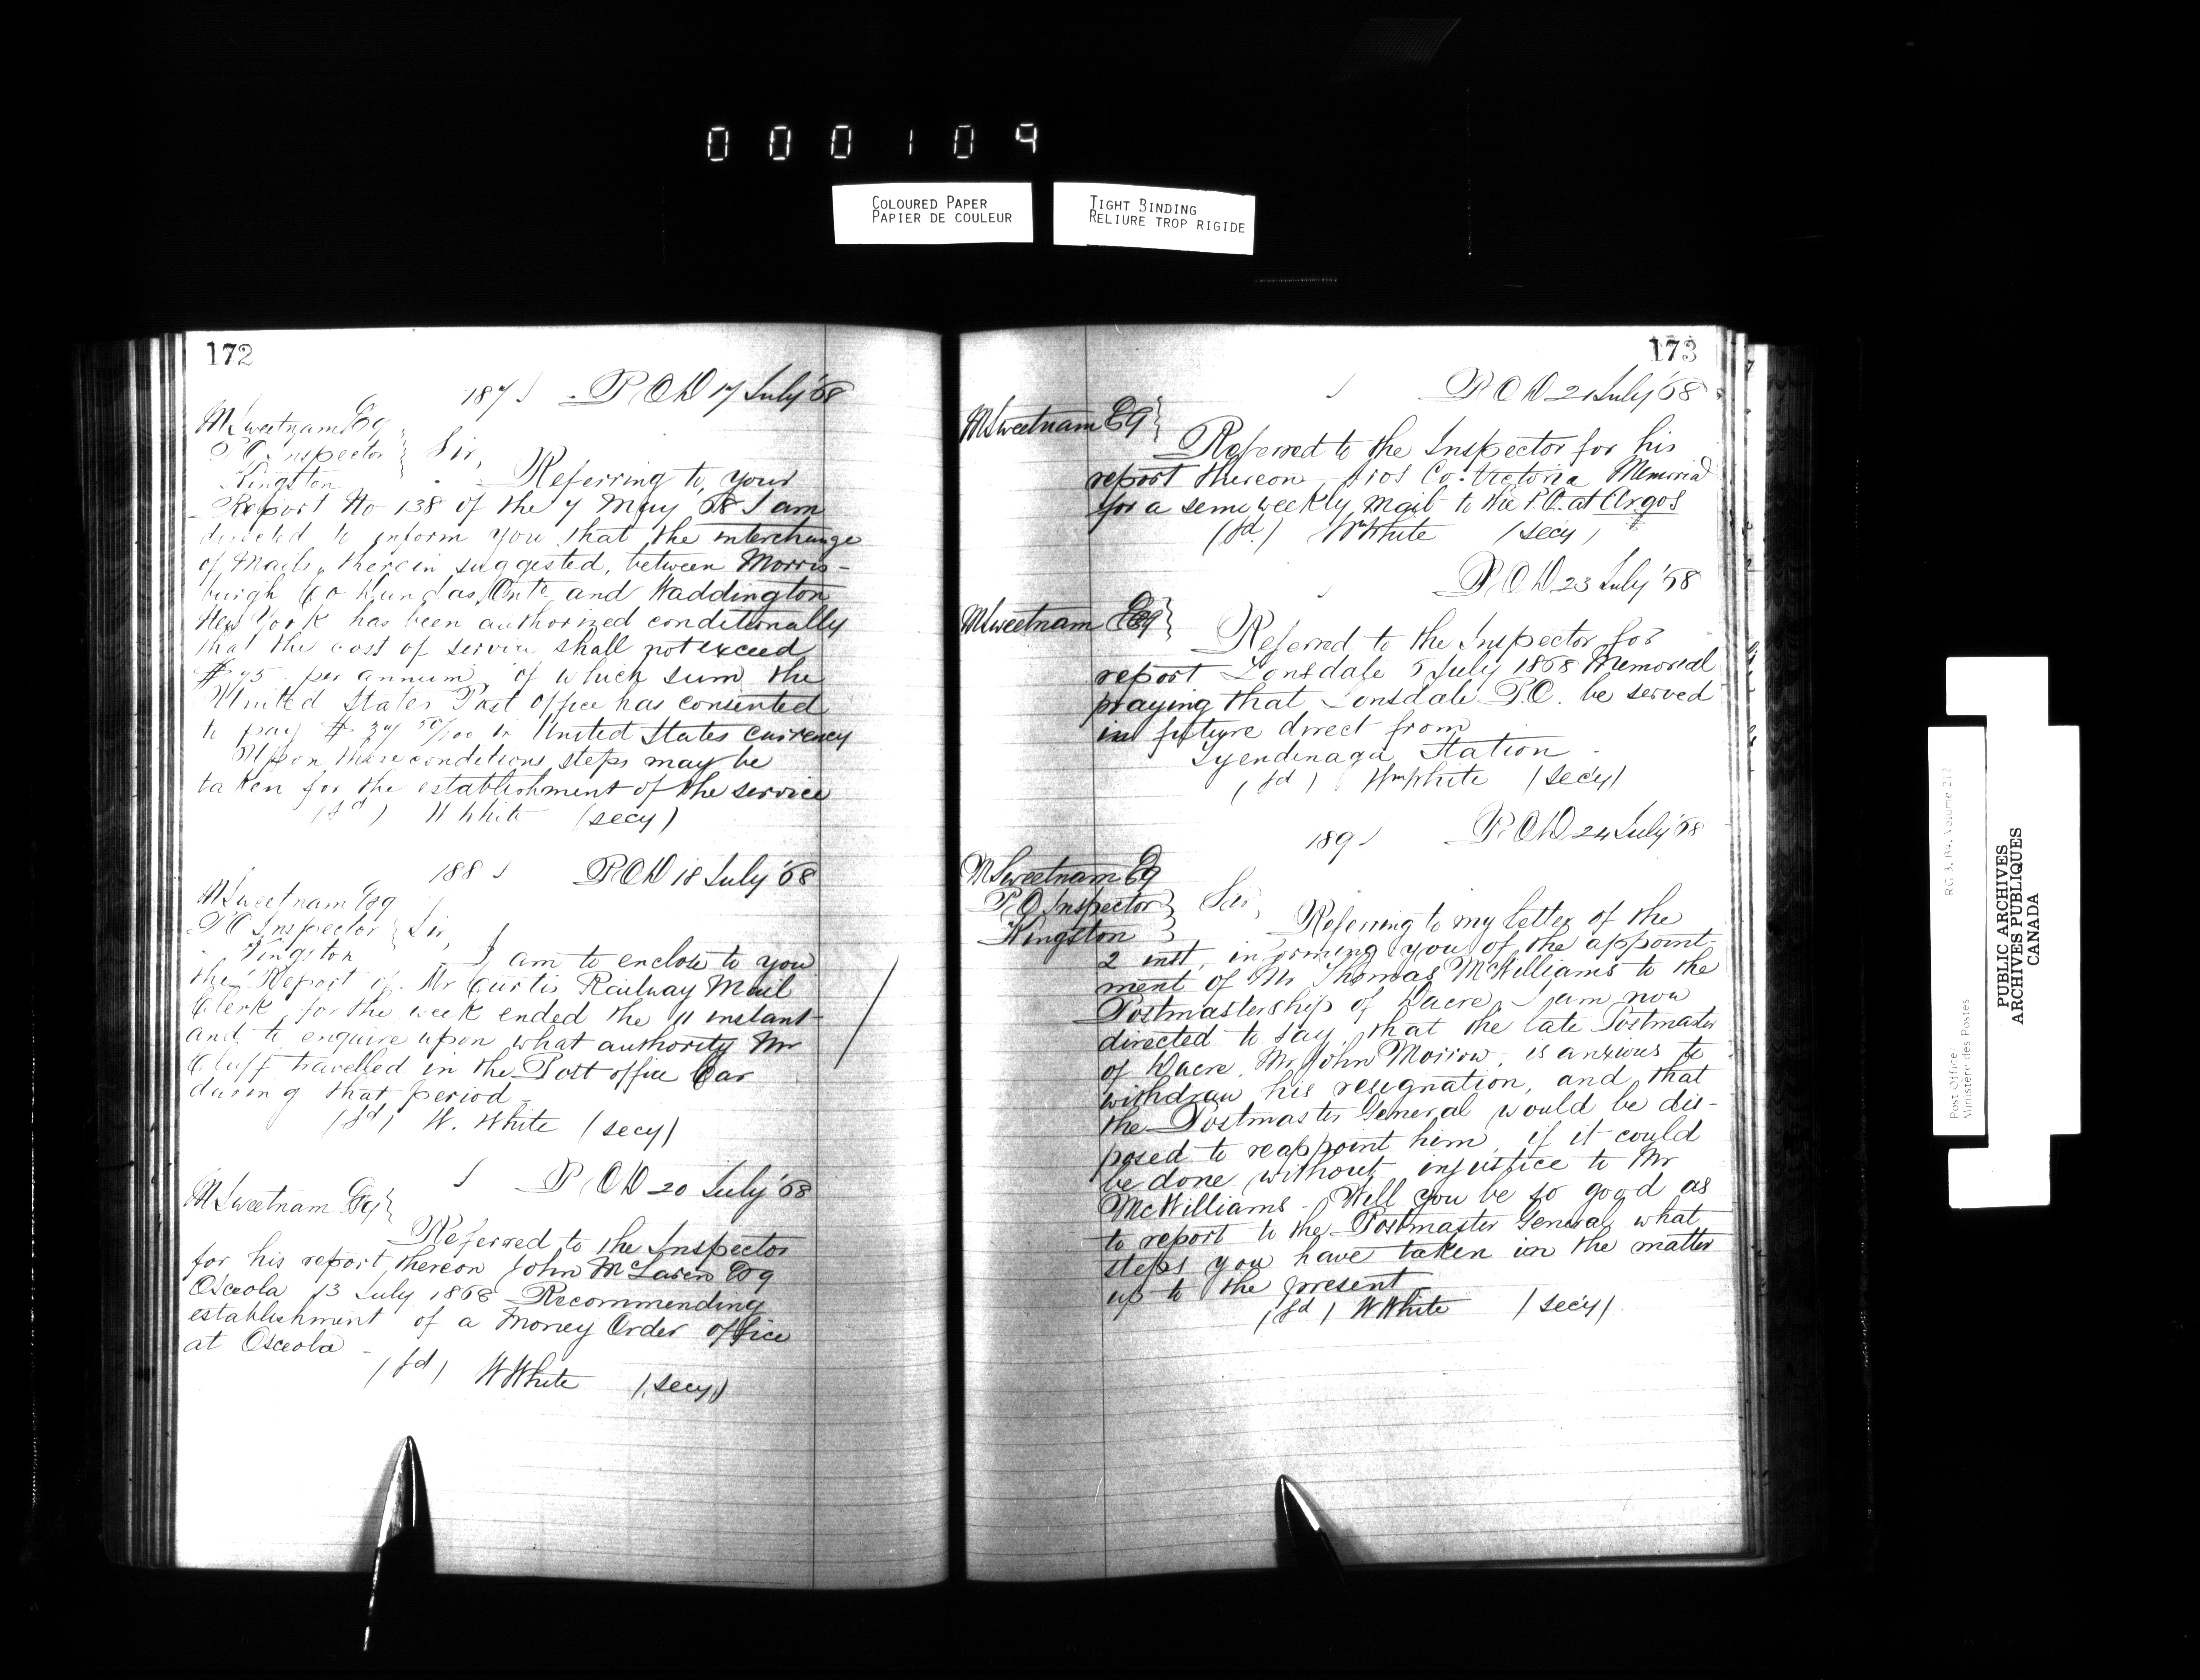 000109
COLOURED PAPER
PAPIER DE COULEUR
TIGHT BINDING
RELIURE TROP RIGIDE
172
187 P O D 17 July '68
M Sweetnam Esq
P O Inspector
Kingston
Sir,
Referring to your
Report No 138 of the 7 May 68 I am
directed to inform you that the interchange
of Mails, therein suggested, between Morris-
burgh Co Dundas, Onto and Waddington
New York has been authorized conditionally
that the cost of service shall not exceed
$75 per annum, of which sum the
United States Post Office has consented
to pay $37 50/100 in United States currency
Upon these conditions steps may be
taken for the establishment of the service
(sd) W White (secy)
188 P O D 18 July '68
M Sweetnam Esq
P O Inspector
Kingston
Sir,
I am to enclose to you
the Report of Mr Curtis Railway Mail
Clerk for the week ended the 11 instant
and to enquire upon what authority Mr
Cluff travelled in the Post office Car
during that period
(sd) W. White (secy)
P O D 20 July '68
M Sweetnam Esq
Referred to the Inspector
for his report thereon John McLaren Esq
Osceola 13 July 1868 Recommending
establishment of a Money Order office
at Osceola -
(sd) W White (secy)
173
P O D 21 July '68
M Sweetnam Esq
Referred to the Inspector for his
report thereon Co. Victoria Memorial
for a semi weekly Mail to the P.O. at Argos
(sd) Wm White (secy)
P O D 23 July '68
M Sweetnam Esq
Referred to the Inspector for
report Lonsdale 5 July 1868 Memorial
praying that Lonsdale P.O. be served
in future direct from
Tyendinaga Station -
(sd) Wm White (secy)
189 P O D 24 July '68
M Sweetnam Esq
P O Inspector
Kingston
Sir,
Referring to my letter of the
2 inst, informing you of the appoint-
ment of Mr Thomas McWilliams to the
Postmastership of Dacre, I am now
directed to say, that the late Postmaster
of Dacre, Mr John Morrow, is anxious to
withdraw his resignation, and that
the Postmaster General would be dis-
posed to reappoint him, if it could
be done without injustice to Mr
McWilliams - Will you be so good as
to report to the Postmaster General what
steps you have taken in the matter
up to the present
(sd) W White (secy)
RG 3, B4, Volume 212
Post Office/
Ministère des Postes
PUBLIC ARCHIVES
ARCHIVES PUBLIQUES
CANADA